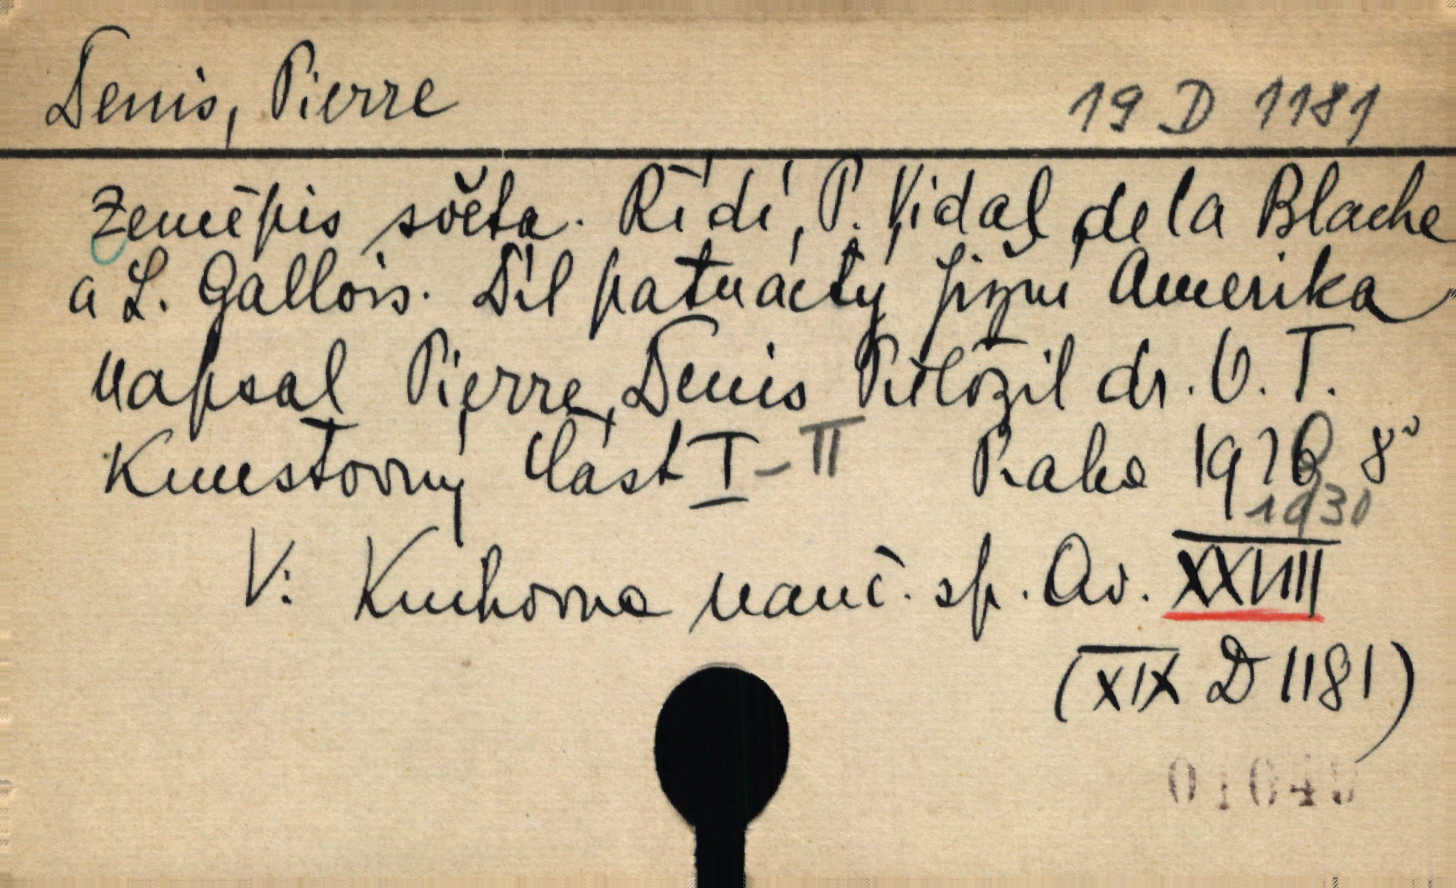 Denis, Pierre 19 D 1181
Zeměpis světa. Řídí P. Vidal de la Blache
a L. Gallois. Díl patnáctý Jižní Amerika
napsal Pierre Denis Přeložil dr. V. T.
Část I-II Praha 8°
1930
V: Knihovna nauč. sp. Av. XXVIII
(XIX D 1181)